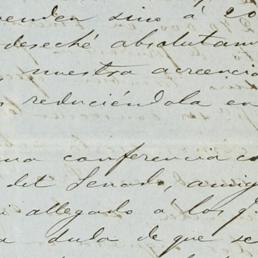 sino á
deseché absolutam
nuestra acreencia
reduciéndola en
na conferencia c
del Senado, amig
i allegado á los
a duda de que se